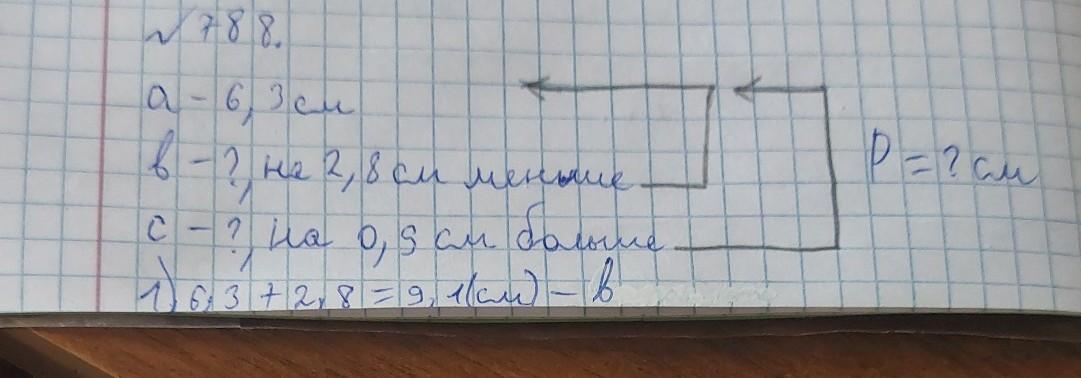 №788.
a - 6,3 см
в - ?, на 2,8 см меньше
с - ?, на 0,9 см больше
P = ? см
1) 6,3 + 2,8 = 9,1(см) - в